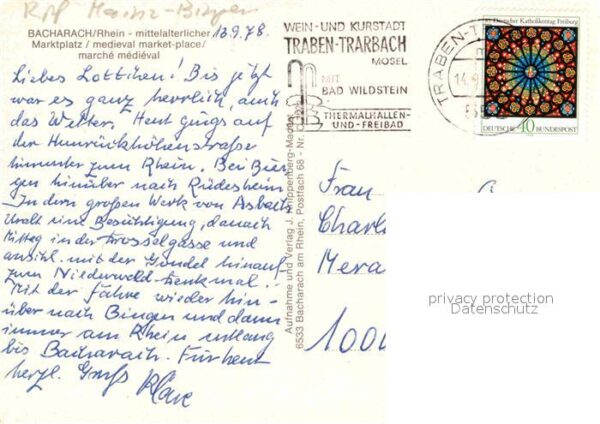 Rpf Mainz-Bingen
BACHARACH/Rhein - mittelalterlicher
Marktplatz / medieval market-place/
marché médiéval
13.9.78.
Liebes Lottchen! Bis jetzt
war es ganz herrlich, auch
das Wetter. Heut gings auf
der Hunsrückhöhenstraße
hinunter zum Rhein. Bei Bin-
gen hinüber nach Rüdesheim
In dem großen Werk von Asbach
Uralt eine Besichtigung, danach
Mittag in der Drosselgasse und
anschl. mit der Gondel hinauf
zum Niederwald-Denkmal!
Mit der Fähre wieder hin-
über nach Bingen und dann
immer am Rhein entlang
bis Bacharach. Für heut
herzl. Gruß
Aufnahme und Verlag J. Knippenberg-Macher
6533 Bacharach am Rhein, Postfach 68 - Nr.
WEIN- UND KURSTADT
TRABEN-TRARBACH
MOSEL
MIT
BAD WILDSTEIN
THERMALHALLEN-
UND-FREIBAD
TRABEN-T
14.9
Deutscher Katholikentag Freiburg
DEUTSCHE 40 BUNDESPOST
Frau
Charl
Mera
1000
privacy protection
Datenschutz